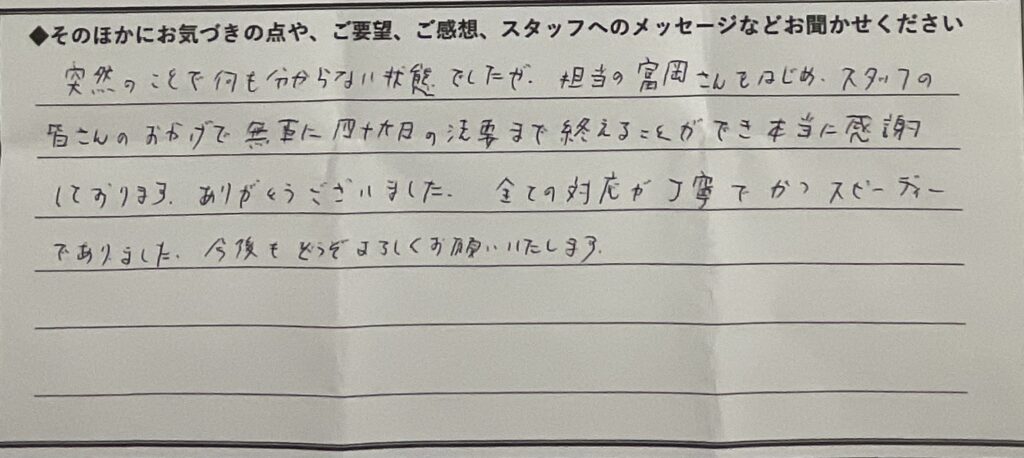 ◆そのほかにお気づきの点や、ご要望、ご感想、スタッフへのメッセージなどお聞かせください
突然のことで何も分からない状態でしたが、担当の富岡さんをはじめ、スタッフの
皆さんのおかげで無事に四十九日の法要まで終えることができ本当に感謝
しております。ありがとうございました。全ての対応が丁寧でかつスピーディー
でありました。今後もどうぞよろしくお願いいたします。